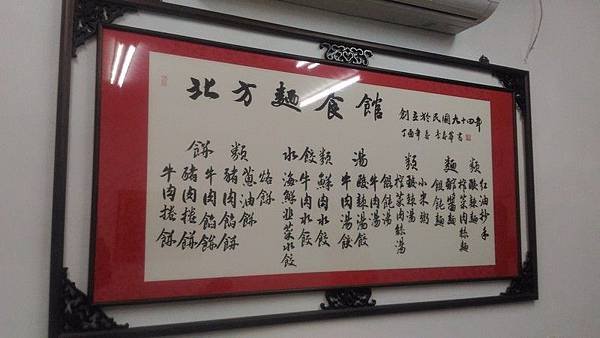 北方麵食館
創立於民國九十四年
麵類
紅油抄手
酸辣麵
榨菜肉絲麵
炸醬麵
餛飩麵
湯類
小米粥
酸辣湯
榨菜肉絲湯
餛飩湯
牛肉湯
酸辣湯餃
牛肉湯餃
水餃類
鮮肉水餃
牛肉水餃
海鮮韭菜水餃
餅類
烙餅
蔥油餅
豬肉餡餅
牛肉餡餅
豬肉捲餅
牛肉捲餅